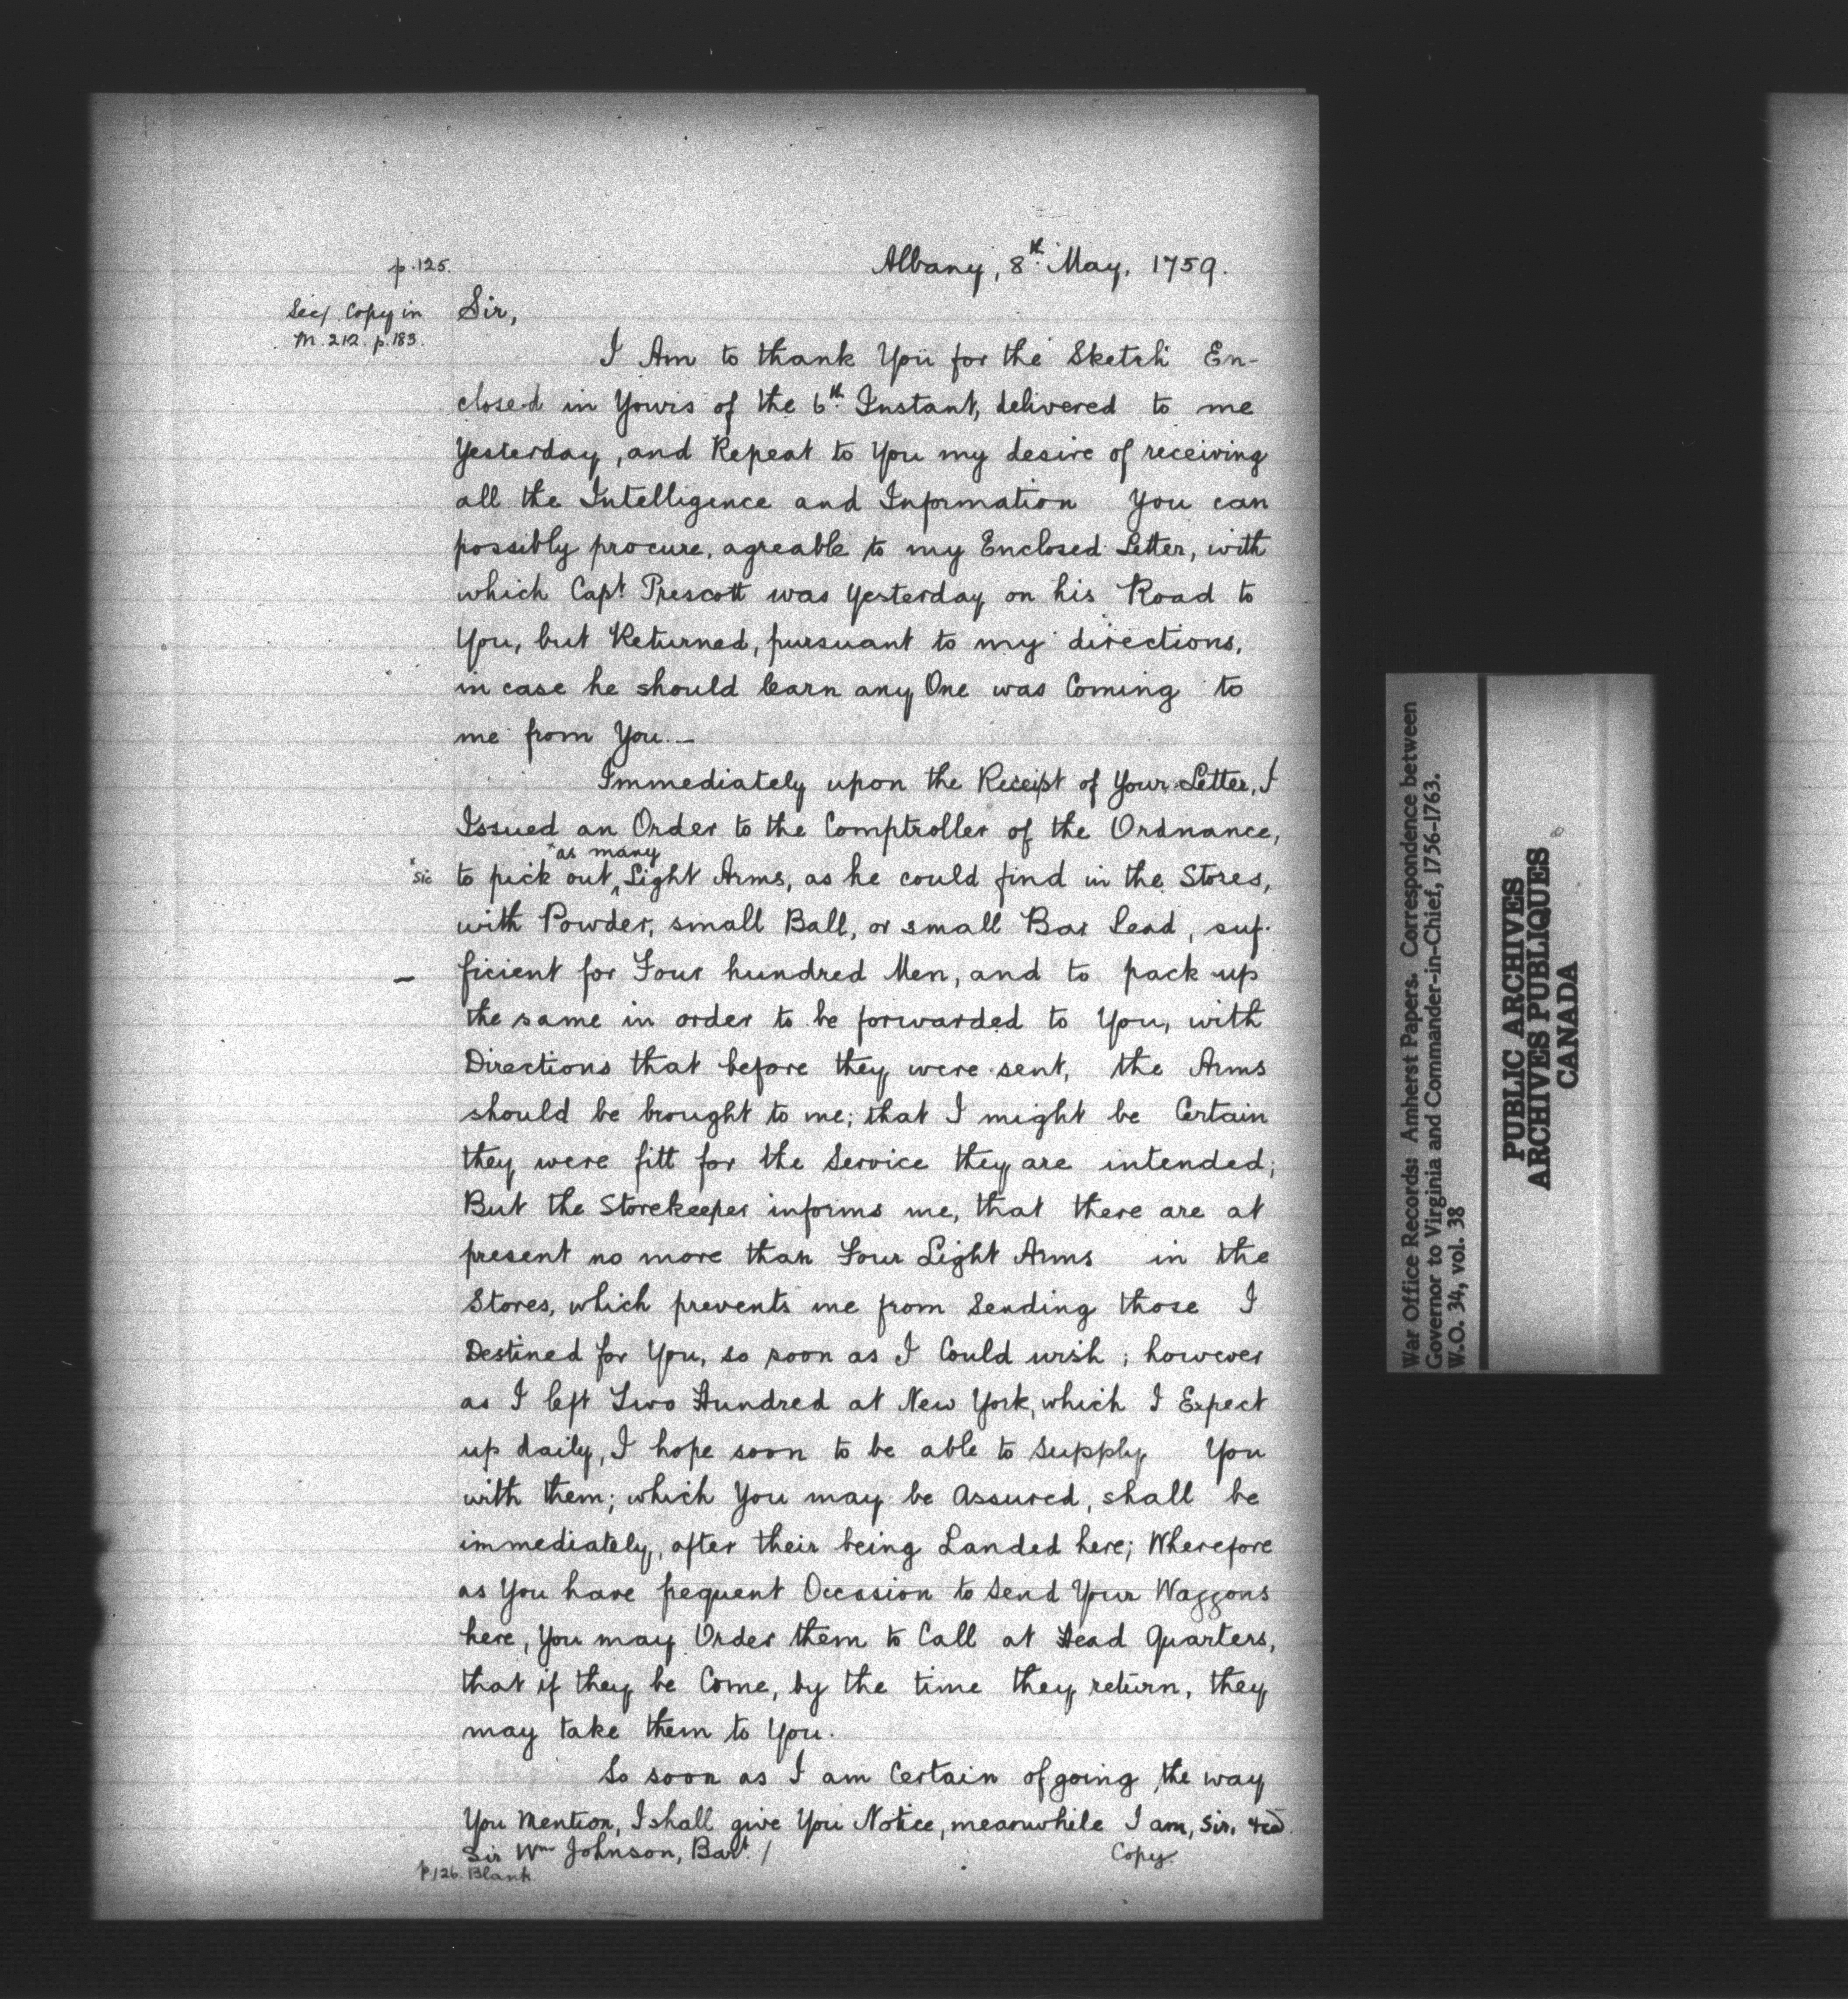 p.125.
Albany, 8th May, 1759.
See/ Copy in
M. 212. p.183.
Sir,
I Am to thank You for the Sketch En-
closed in Yours of the 6th Instant, delivered to me
Yesterday, and Repeat to You my desire of receiving
all the Intelligence and Information You can
possibly procure, agreable to my Enclosed Letter, with
which Capt. Prescott was Yesterday on his Road to
You, but Returned, pursuant to my directions,
in case he should learn any One was Coming to
me from You. —
Immediately upon the Receipt of Your Letter, I
Issued an Order to the Comptroller of the Ordnance,
x as many
x sic to pick out ^ Light Arms, as he could find in the Stores,
with Powder, small Ball, or small Bar Lead, suf-
— ficient for Four hundred Men, and to pack up
the same in order to be forwarded to You, with
Directions that before they were sent, the Arms
should be brought to me; that I might be Certain
they were fitt for the Service they are intended;
But the Storekeeper informs me, that there are at
present no more than Four Light Arms in the
Stores, which prevents me from Sending those I
Destined for You, so soon as I Could wish; however
as I left Two Hundred at New York, which I Expect
up daily, I hope soon to be able to Supply You
with them; which You may be Assured, shall be
immediately, after their being Landed here; Wherefore
as You have frequent Occasion to Send Your Waggons
here, You may Order them to Call at Head Quarters,
that if they be Come, by the time they return, they
may take them to You.
So soon as I am Certain of going the way
You Mention, I shall give You Notice, meanwhile I am, Sir, &ca.
Sir Wm Johnson, Bart. /
Copy.
p.126. Blank
War Office Records: Amherst Papers. Correspondence between
Governor to Virginia and Commander-in-Chief, 1756-1763.
W.O. 34, vol. 38
PUBLIC ARCHIVES
ARCHIVES PUBLIQUES
CANADA